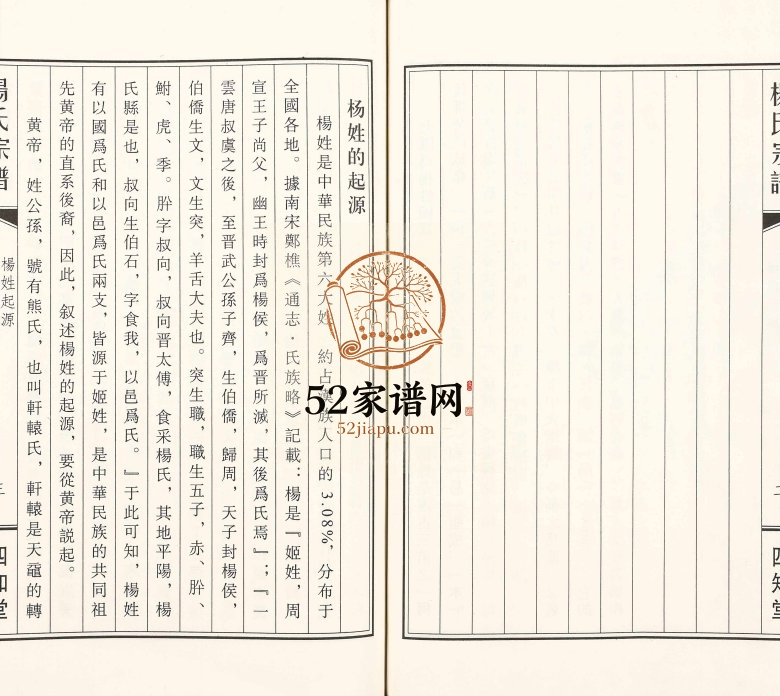 楊氏宗譜
四知堂
杨姓的起源
楊姓是中華民族第六大姓 約占漢族人口的 3.08%，分布于
全國各地。據南宋鄭樵《通志·氏族略》記載：楊是『姬姓，周
宣王子尚父，幽王時封爲楊侯，爲晋所滅，其後爲氏焉』；『一
雲唐叔虞之後，至晋武公孫子齊，生伯僑，歸周，天子封楊侯，
伯僑生文，文生突，羊舌大夫也。突生職，職生五子，赤、肸、
鮒、虎、季。肸字叔向，叔向晋太傅，食采楊氏，其地平陽，楊
氏縣是也，叔向生伯石，字食我，以邑爲氏。』于此可知，楊姓
有以國爲氏和以邑爲氏兩支，皆源于姬姓，是中華民族的共同祖
先黄帝的直系後裔，因此，叙述楊姓的起源，要從黄帝説起。
黄帝，姓公孫，號有熊氏，也叫軒轅氏，軒轅是天黿的轉
楊氏宗譜
楊姓起源
三
四知堂
52家谱网
52jiapu.com